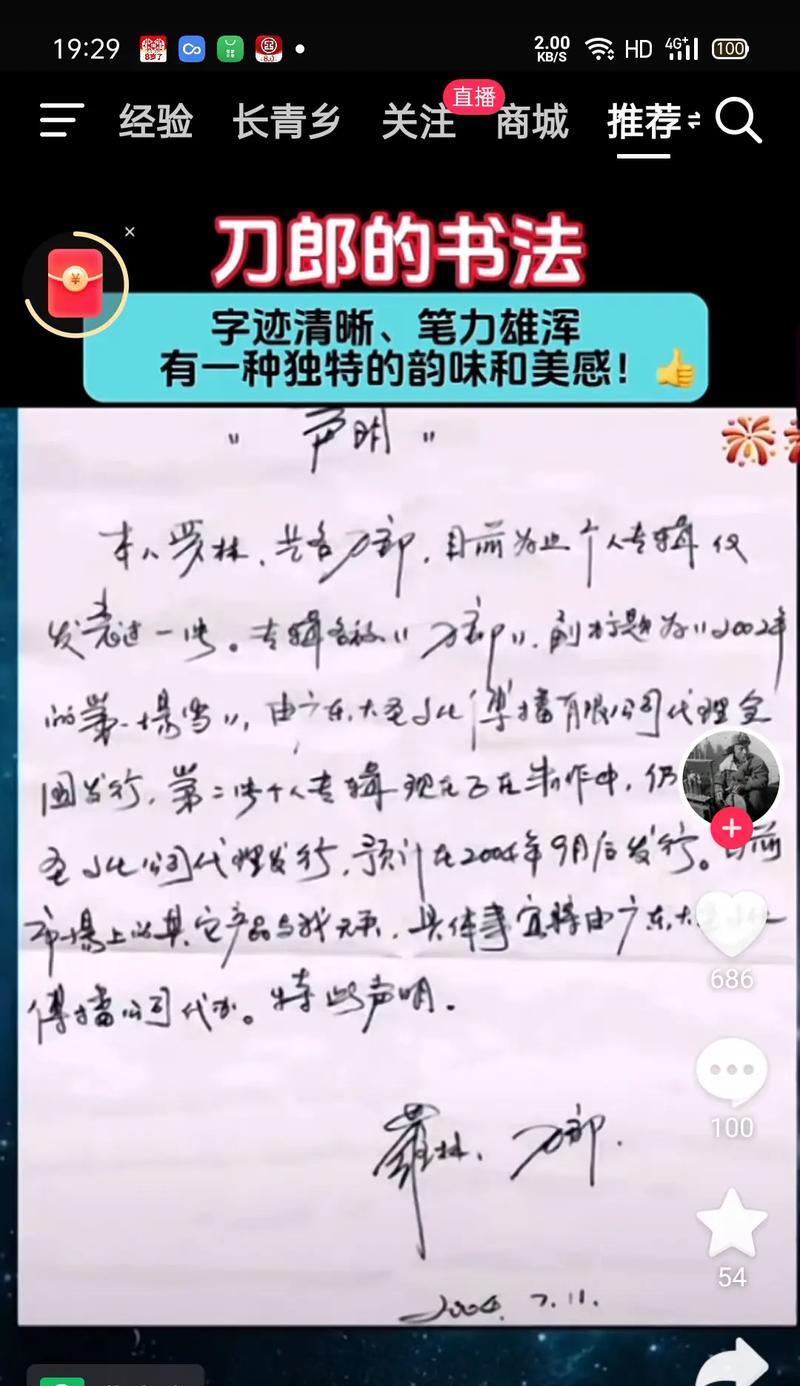 19:29
2.00 KB/S HD 4G+ 100
经验 长青乡 关注 直播 商城 推荐
刀郎的书法
字迹清晰、笔力雄浑
有一种独特的韵味和美感！
"声明"
本人罗林，艺名刀郎，目前为止个人专辑仅
发表过一张。专辑名称"刀郎"，副标题为"2002年
的第一场雪"，由广东大圣文化传播有限公司代理全
国发行，第二张个人专辑现正在制作中，仍
圣文化公司代理发行，预计在2004年9月后发行。目前
市场上的其它产品与我无关，具体事宜将由广东大圣文化
传播公司代办。特此声明。
羅林、刀郎.
2004.7.11.
686
100
54